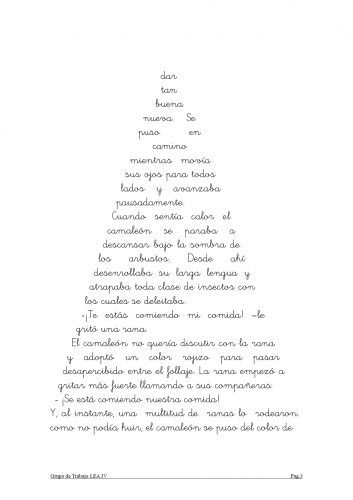 dar
tan
buena
nueva. Se
puso en
camino
mientras movía
sus ojos para todos
lados y avanzaba
pausadamente.
Cuando sentía calor el
camaleón se paraba a
descansar bajo la sombra de
los arbustos. Desde ahí
desenrollaba su larga lengua y
atrapaba toda clase de insectos con
los cuales se deleitaba.
-¡Te estás comiendo mi comida! –le
gritó una rana.
El camaleón no quería discutir con la rana
y adoptó un color rojizo para pasar
desapercibido entre el follaje. La rana empezó a
gritar más fuerte llamando a sus compañeras:
- ¡Se está comiendo nuestra comida!
Y, al instante, una multitud de ranas lo rodearon.
como no podía huir, el camaleón se puso del color de
Grupo de Trabajo LEA IV Pag.3